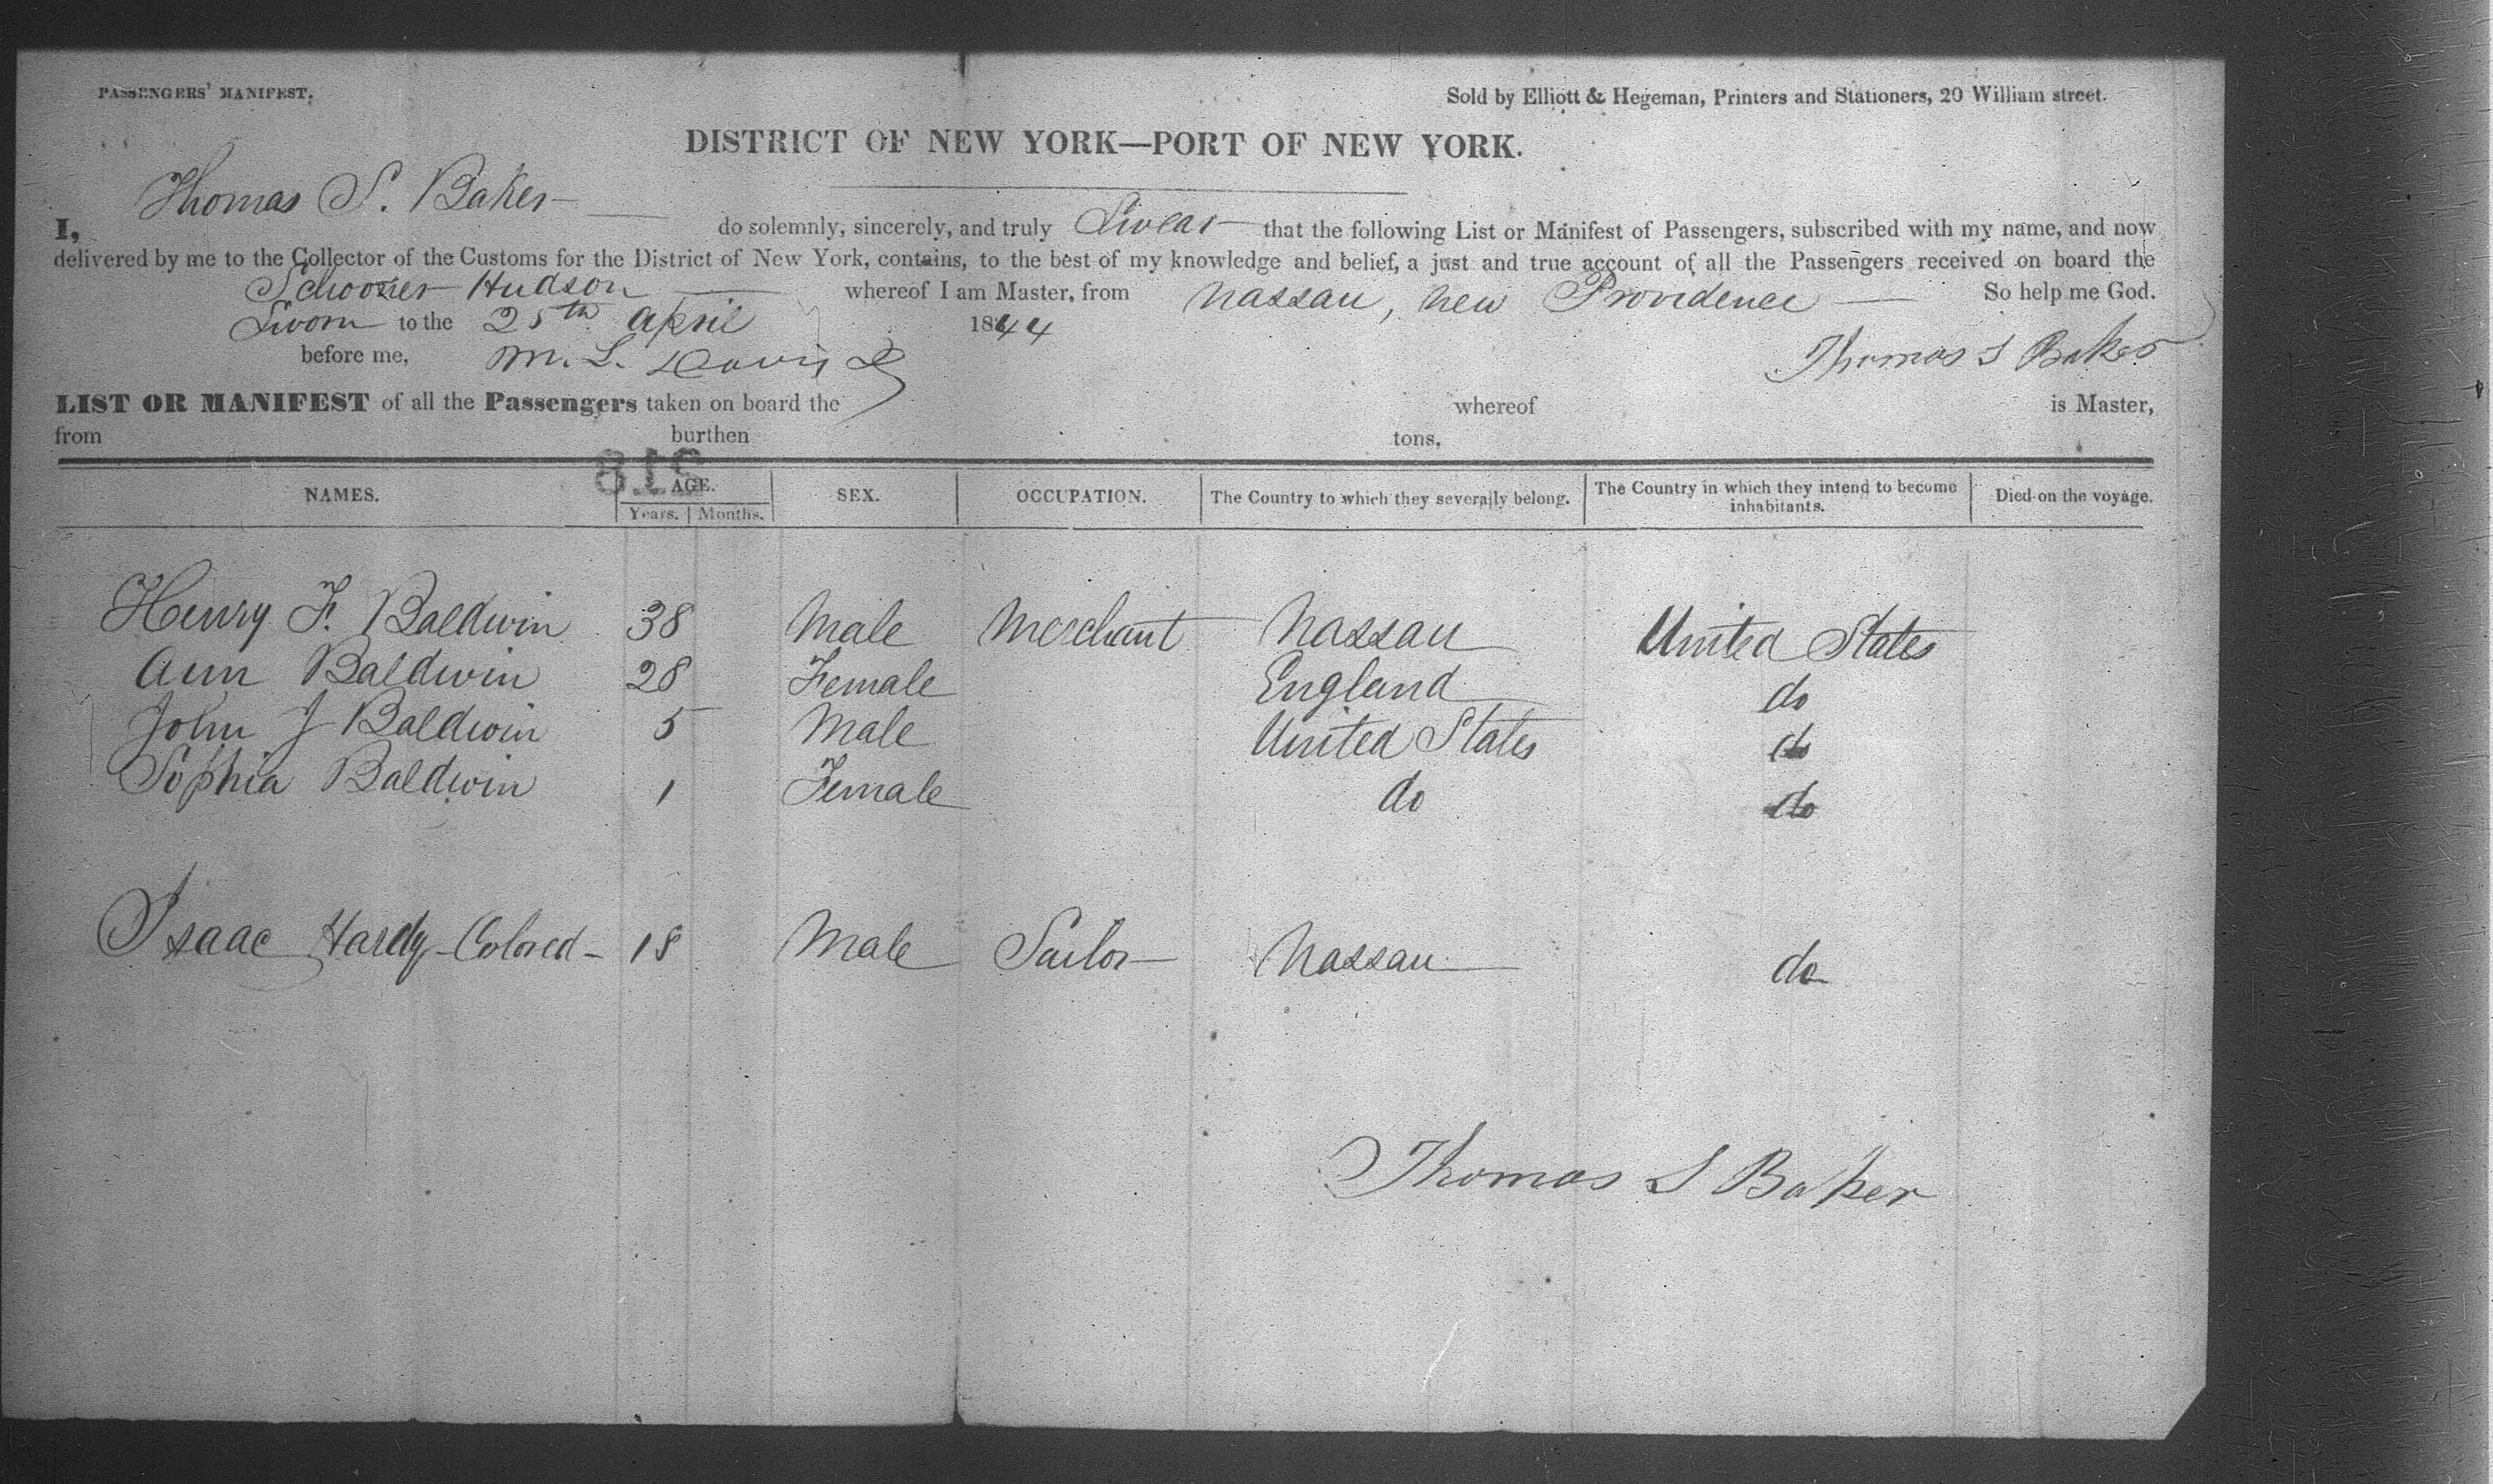 PASSENGERS' MANIFEST.
Sold by Elliott & Hegeman, Printers and Stationers, 20 William street.
DISTRICT OF NEW YORK—PORT OF NEW YORK.
I, Thomas S. Baker do solemnly, sincerely, and truly Swear that the following List or Manifest of Passengers, subscribed with my name, and now
delivered by me to the Collector of the Customs for the District of New York, contains, to the best of my knowledge and belief, a just and true account of all the Passengers received on board the
Schooner Hudson whereof I am Master, from Nassau, New Providence So help me God.
Sworn to the 25th April 1844
before me, M. L. Davis Thomas S Baker
LIST OR MANIFEST of all the Passengers taken on board the whereof is Master,
from burthen tons,
218
NAMES. AGE. SEX. OCCUPATION. The Country to which they severally belong. The Country in which they intend to become inhabitants. Died on the voyage.
Years. Months.
Henry F. Baldwin 38 Male Merchant Nassau United States
Ann Baldwin 28 Female England do
John J Baldwin 5 Male United States do
Sophia Baldwin 1 Female do do
Isaac Hardy - Colored - 18 Male Sailor Nassau do
Thomas S Baker